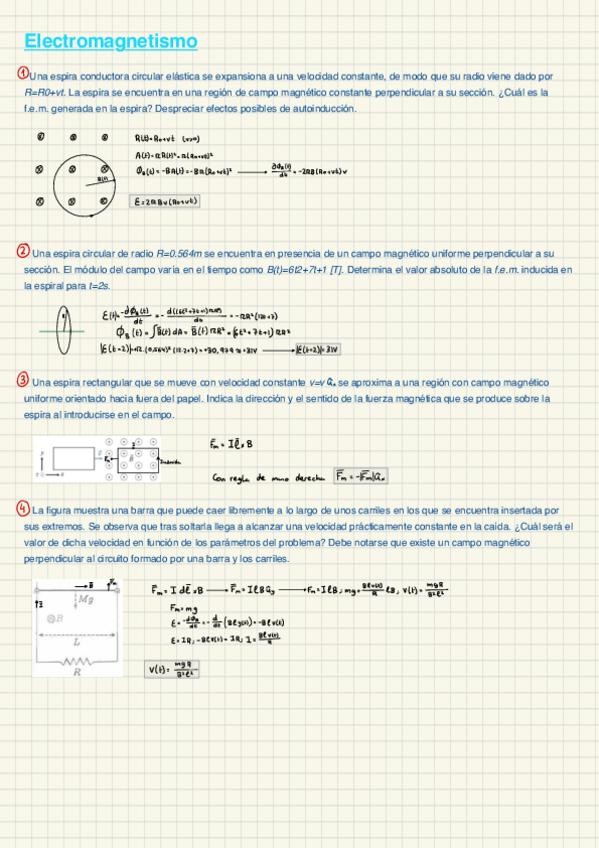 Electromagnetismo
1 Una espira conductora circular elástica se expansiona a una velocidad constante, de modo que su radio viene dado por
R=R0+vt. La espira se encuentra en una región de campo magnético constante perpendicular a su sección. ¿Cuál es la
f.e.m. generada en la espira? Despreciar efectos posibles de autoinducción.
R(t)=R₀+vt (v>0)
A(t)=πR(t)²=π(R₀+vt)²
Φ_B(t)=-BA(t)=-Bπ(R₀+vt)² → ∂Φ_B(t)/dt = -2πB(R₀+vt)v
R(t)
ε=2πBv(R₀+vt)
2 Una espira circular de radio R=0.564m se encuentra en presencia de un campo magnético uniforme perpendicular a su
sección. El módulo del campo varía en el tiempo como B(t)=6t2+7t+1 [T]. Determina el valor absoluto de la f.e.m. inducida en
la espiral para t=2s.
ε(t)=-dΦ_B(t)/dt = -d((6t²+7t+1)πR²)/dt = -πR²(12t+7)
Φ_B(t)=∫B(t)dA=B(t)πR²=(6t²+7t+1)πR²
|ε(t=2)|=π·(0,564)²(12·2+7)=30,979≈31V → |ε(t=2)|=31V
3 Una espira rectangular que se mueve con velocidad constante v=v se aproxima a una región con campo magnético
uniforme orientado hacia fuera del papel. Indica la dirección y el sentido de la fuerza magnética que se produce sobre la
espira al introducirse en el campo.
F_m = I l x B
Con regla de mano derecha F_m = -|F_m|û_x
4 La figura muestra una barra que puede caer libremente a lo largo de unos carriles en los que se encuentra insertada por
sus extremos. Se observa que tras soltarla llega a alcanzar una velocidad prácticamente constante en la caída. ¿Cuál será el
valor de dicha velocidad en función de los parámetros del problema? Debe notarse que existe un campo magnético
perpendicular al circuito formado por una barra y los carriles.
F_m = I dl x B → F_m = I l B û_y → F_m = I l B; mg = Blv(t)/R lB, v(t) = mgR/B²l²
F_m = mg
ε = -dΦ_B/dt = -d/dt (Bly(t)) = -Blv(t)
ε = IR, -Blv(t) = IR, I = Blv(t)/R
v(t) = mgR/B²l²
Mg
B
L
R